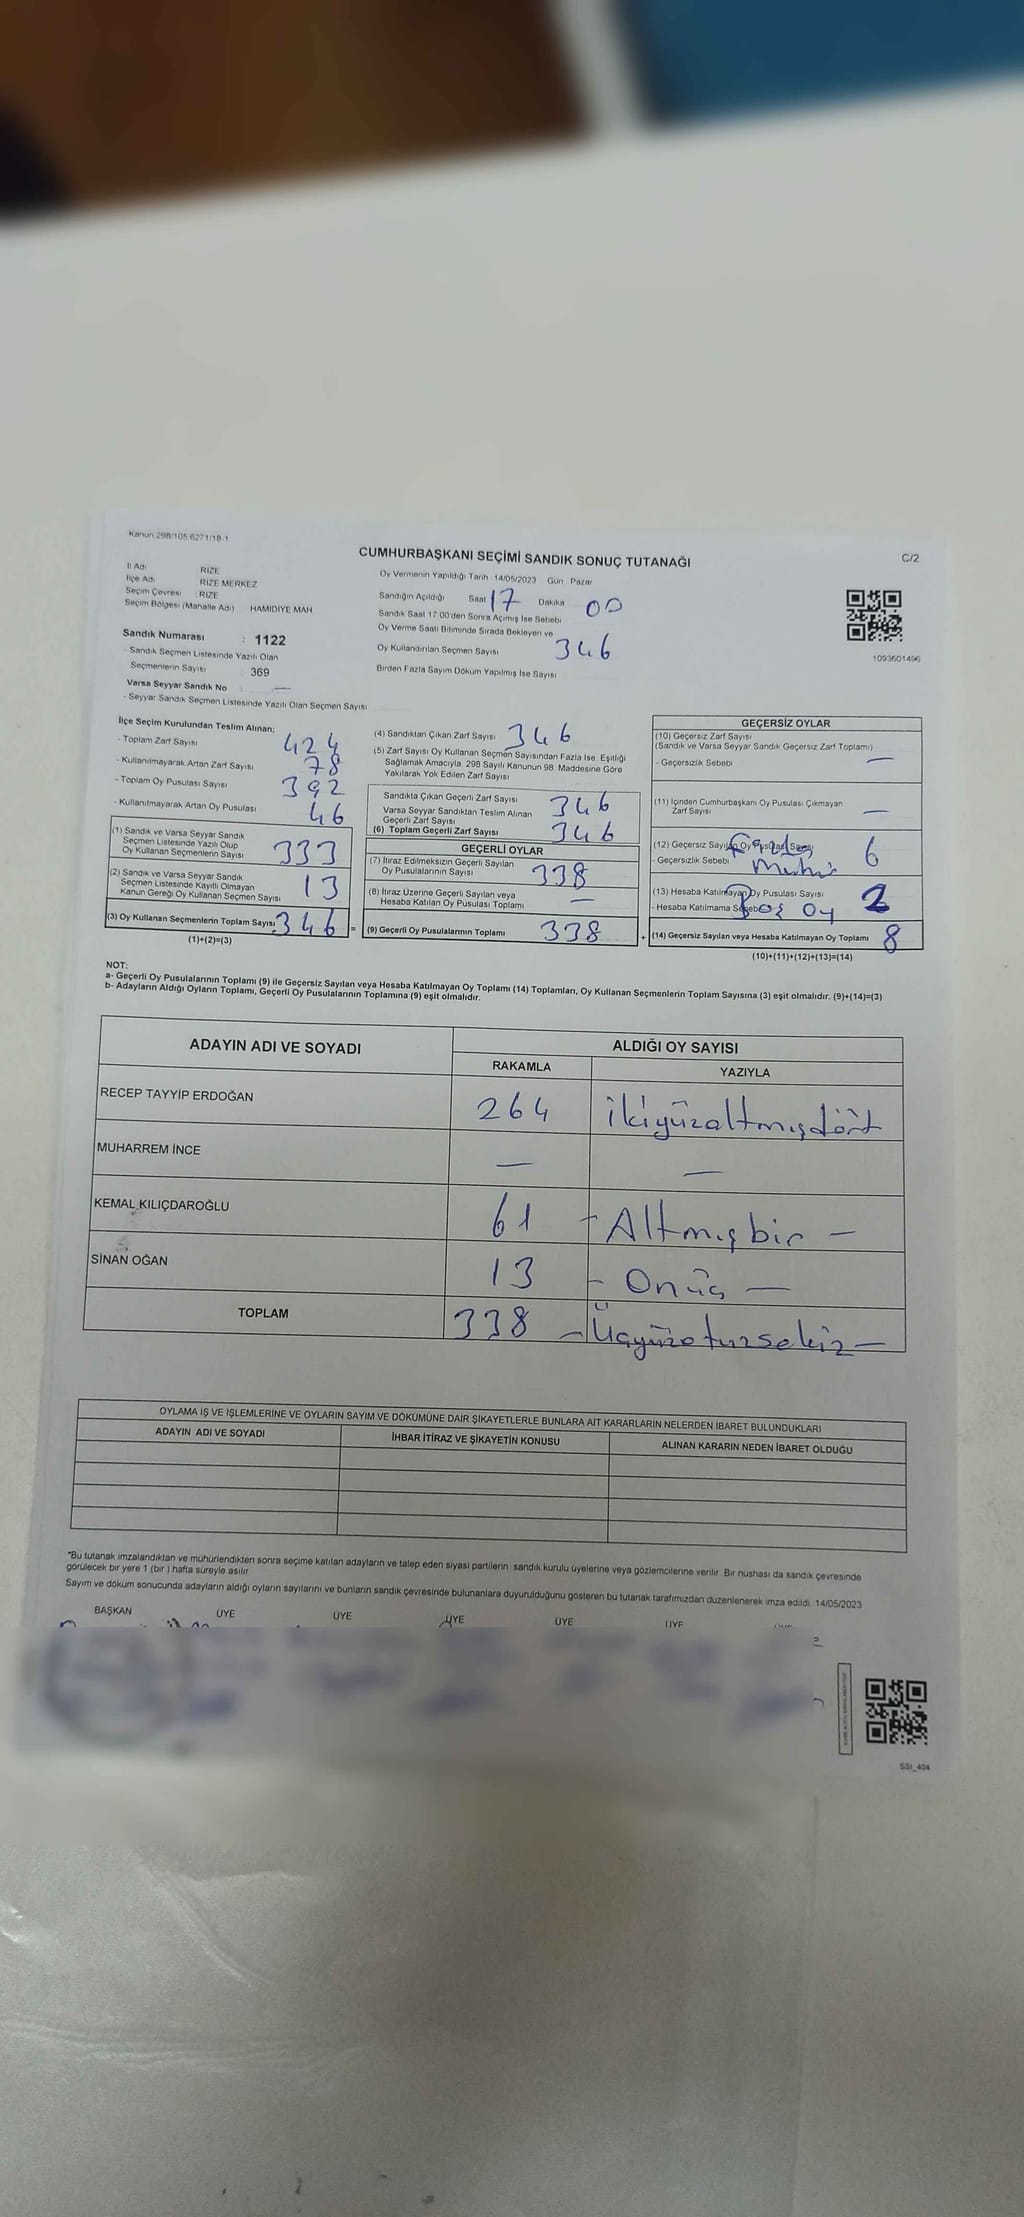 Kanun 298/105 6271/18-1
CUMHURBAŞKANI SEÇİMİ SANDIK SONUÇ TUTANAĞI
C/2
İl Adı RİZE
İlçe Adı RİZE MERKEZ
Seçim Çevresi : RİZE
Seçim Bölgesi (Mahalle Adı) HAMİDİYE MAH
Sandık Numarası : 1122
- Sandık Seçmen Listesinde Yazılı Olan
Seçmenlerin Sayısı : 369
Varsa Seyyar Sandık No : —
- Seyyar Sandık Seçmen Listesinde Yazılı Olan Seçmen Sayısı
Oy Vermenin Yapıldığı Tarih 14/05/2023 Gün Pazar
Sandığın Açıldığı Saat 17 Dakika 00
Sandık Saat 17:00'den Sonra Açımış İse Sebebi
Oy Verme Saati Bitiminde Sırada Bekleyen ve
Oy Kullandırılan Seçmen Sayısı 346
Birden Fazla Sayım Döküm Yapılmış İse Sayısı
1093601496
İlçe Seçim Kurulundan Teslim Alınan;
- Toplam Zarf Sayısı 424
- Kullanılmayarak Artan Zarf Sayısı 78
- Toplam Oy Pusulası Sayısı 392
- Kullanılmayarak Artan Oy Pusulası 46
(1) Sandık ve Varsa Seyyar Sandık
Seçmen Listesinde Yazılı Olup
Oy Kullanan Seçmenlerin Sayısı 333
(2) Sandık ve Varsa Seyyar Sandık
Seçmen Listesinde Kayıtlı Olmayan
Kanun Gereği Oy Kullanan Seçmen Sayısı 13
(3) Oy Kullanan Seçmenlerin Toplam Sayısı 346 =
(1)+(2)=(3)
(4) Sandıktan Çıkan Zarf Sayısı 346
(5) Zarf Sayısı Oy Kullanan Seçmen Sayısından Fazla İse, Eşitliği
Sağlamak Amacıyla, 298 Sayılı Kanunun 98. Maddesine Göre
Yakılarak Yok Edilen Zarf Sayısı
Sandıkta Çıkan Geçerli Zarf Sayısı 346
Varsa Seyyar Sandıktan Teslim Alınan
Geçerli Zarf Sayısı
(6) Toplam Geçerli Zarf Sayısı 346
GEÇERLİ OYLAR
(7) İtiraz Edilmeksizin Geçerli Sayılan
Oy Pusulalarının Sayısı 338
(8) İtiraz Üzerine Geçerli Sayılan veya
Hesaba Katılan Oy Pusulası Toplamı —
(9) Geçerli Oy Pusulalarının Toplamı 338 +
GEÇERSİZ OYLAR
(10) Geçersiz Zarf Sayısı
(Sandık ve Varsa Seyyar Sandık Geçersiz Zarf Toplamı)
- Geçersizlik Sebebi —
(11) İçinden Cumhurbaşkanı Oy Pusulası Çıkmayan
Zarf Sayısı —
(12) Geçersiz Sayılan Oy Pusulası Sayısı Fazla 6
- Geçersizlik Sebebi Mühür
(13) Hesaba Katılmayan Oy Pusulası Sayısı 2
- Hesaba Katılmama Sebebi Boş Oy
(14) Geçersiz Sayılan veya Hesaba Katılmayan Oy Toplamı 8
(10)+(11)+(12)+(13)=(14)
NOT:
a- Geçerli Oy Pusulalarının Toplamı (9) ile Geçersiz Sayılan veya Hesaba Katılmayan Oy Toplamı (14) Toplamları, Oy Kullanan Seçmenlerin Toplam Sayısına (3) eşit olmalıdır. (9)+(14)=(3)
b- Adayların Aldığı Oyların Toplamı, Geçerli Oy Pusulalarının Toplamına (9) eşit olmalıdır.
ADAYIN ADI VE SOYADI ALDIĞI OY SAYISI
RAKAMLA YAZIYLA
RECEP TAYYİP ERDOĞAN 264 ikiyüzaltmışdört
MUHARREM İNCE — —
KEMAL KILIÇDAROĞLU 61 - Altmışbir -
SİNAN OĞAN 13 - Onüç -
TOPLAM 338 - Üçyüzotuzsekiz -
OYLAMA İŞ VE İŞLEMLERİNE VE OYLARIN SAYIM VE DÖKÜMÜNE DAİR ŞİKAYETLERLE BUNLARA AİT KARARLARIN NELERDEN İBARET BULUNDUKLARI
ADAYIN ADI VE SOYADI İHBAR İTİRAZ VE ŞİKAYETİN KONUSU ALINAN KARARIN NEDEN İBARET OLDUĞU
*Bu tutanak imzalandıktan ve mühürlendikten sonra seçime katılan adayların ve talep eden siyasi partilerin sandık kurulu üyelerine veya gözlemcilerine verilir. Bir nüshası da sandık çevresinde
görülecek bir yere 1 (bir) hafta süreyle asılır.
Sayım ve döküm sonucunda adayların aldığı oyların sayılarını ve bunların sandık çevresinde bulunanlara duyurulduğunu gösteren bu tutanak tarafımızdan düzenlenerek imza edildi. 14/05/2023
BAŞKAN ÜYE ÜYE ÜYE ÜYE ÜYE
SGI_404